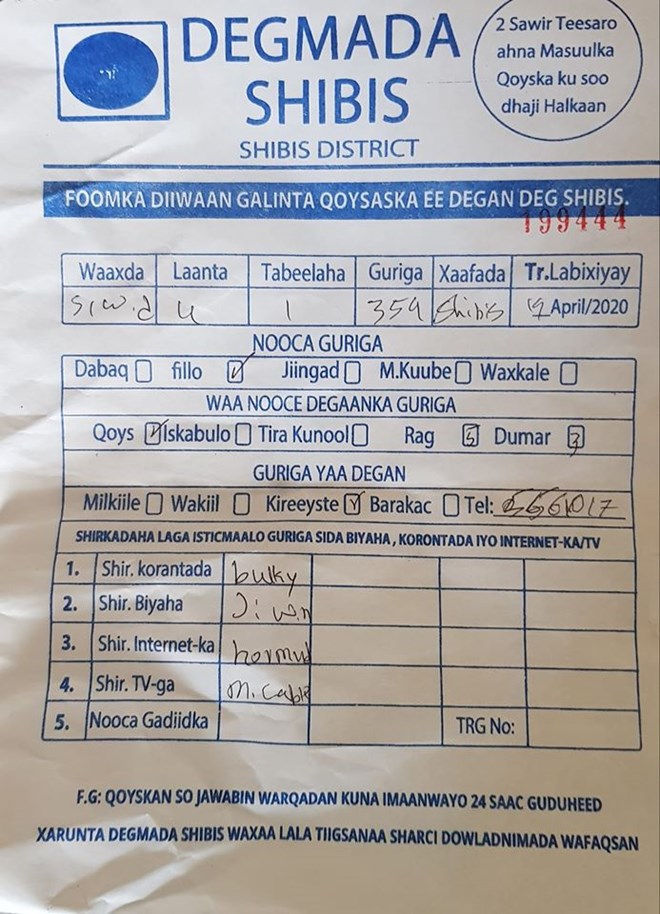 DEGMADA
SHIBIS
SHIBIS DISTRICT
2 Sawir Teesaro
ahna Masuulka
Qoyska ku soo
dhaji Halkaan
FOOMKA DIIWAAN GALINTA QOYSASKA EE DEGAN DEG SHIBIS.
199444
Waaxda Laanta Tabeelaha Guriga Xaafada Tr.Labixiyay
4 1 359 Shibis 19 April/2020
NOOCA GURIGA
Dabaq fillo Jiingad M.Kuube Waxkale
WAA NOOCE DEGAANKA GURIGA
Qoys Iskabulo Tira Kunool Rag 5 Dumar 3
GURIGA YAA DEGAN
Milkiile Wakiil Kireeyste Barakac Tel:
SHIRKADAHA LAGA ISTICMAALO GURIGA SIDA BIYAHA , KORONTADA IYO INTERNET-KA/TV
1. Shir. korantada bulky
2. Shir. Biyaha
3. Shir. Internet-ka hormud
4. Shir. TV-ga M. Cable
5. Nooca Gadiidka TRG No:
F.G: QOYSKAN SO JAWABIN WARQADAN KUNA IMAANWAYO 24 SAAC GUDUHEED
XARUNTA DEGMADA SHIBIS WAXAA LALA TIIGSANAA SHARCI DOWLADNIMADA WAFAQSAN